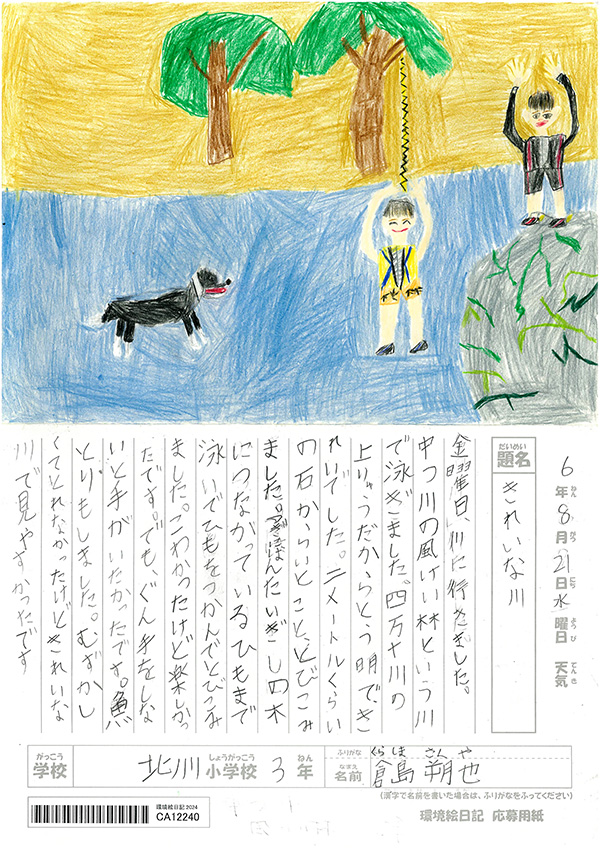 6年8月21日水曜日 天気
ねん がつ にち ようび てんき
だいめい
題名
きれいな川
金曜日、川に行きました。
中つ川の風けい林という川
で泳ぎました。四万十川の
上りゅうだからとう明で、き
れいでした。二メートルくらい
の石からいとこと、とびこみ
ました。
につながっているひもまで
泳いでひもをつかんでとびこみ
ました。こわかったけど楽しかっ
たです。でも、ぐん手をしな
いと手がいたかったです。魚
とりもしました。むずかし
くてとれなかったけどきれいな
川で見やすかったです
がっこう
学校
北川小学校3年
しょうがっこう ねん
ふりがな
くらしま さくや
なまえ
名前
倉島 朔也
(漢字で名前を書いた場合は、ふりがなをふってください)
環境絵日記2024
CA12240
環境絵日記 応募用紙